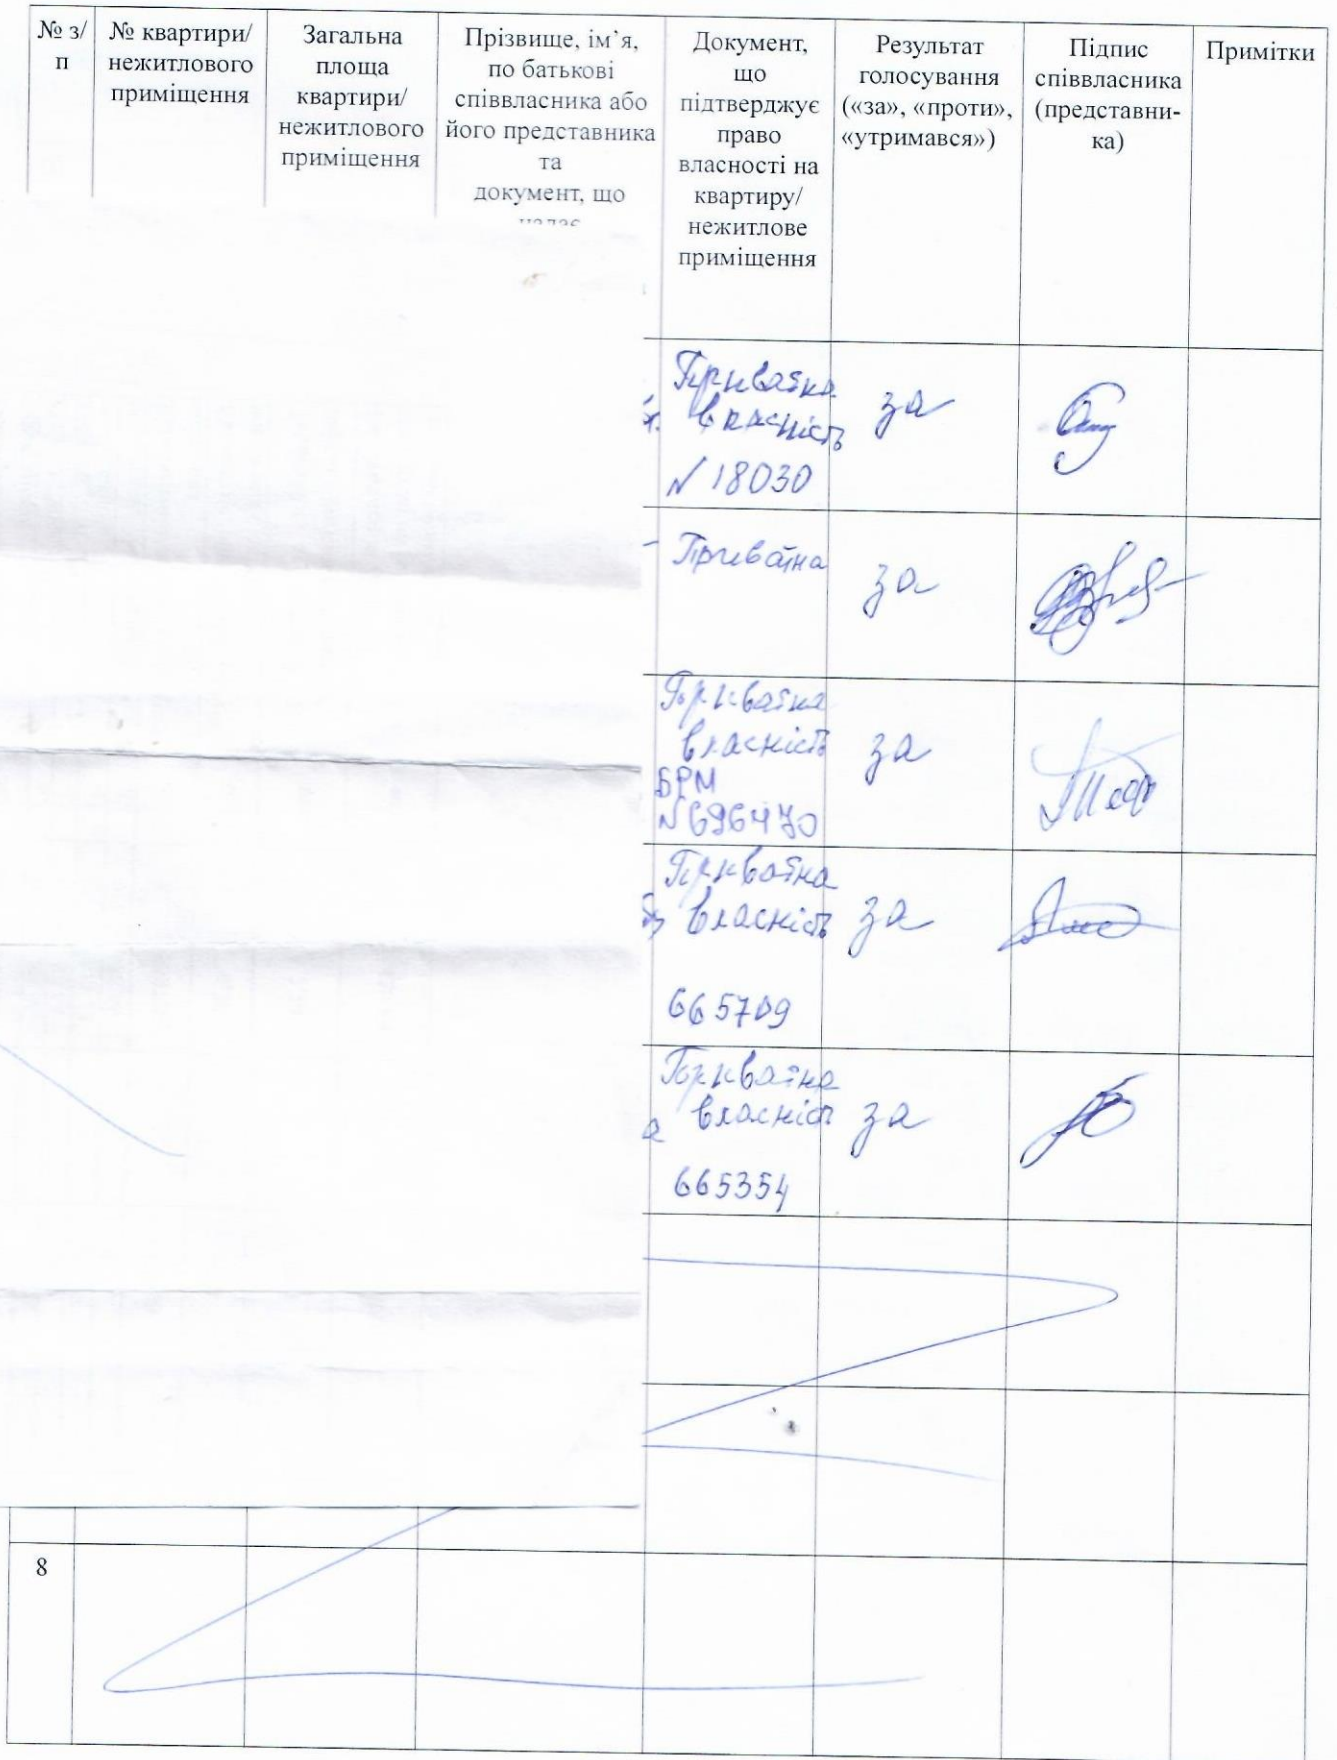 № з/
п
№ квартири/
нежитлового
приміщення
Загальна
площа
квартири/
нежитлового
приміщення
Прізвище, ім’я,
по батькові
співвласника або
його представника
та
документ, що
надає
Документ,
що
підтверджує
право
власності на
квартиру/
нежитлове
приміщення
Результат
голосування
(«за», «проти»,
«утримався»)
Підпис
співвласника
(представни-
ка)
Примітки
Приватна
власність
N 18030
за
Приватна
за
Приватна
власність
БРМ
N 696470
за
Приватна
власність
665709
за
Приватна
власність
665354
за
8